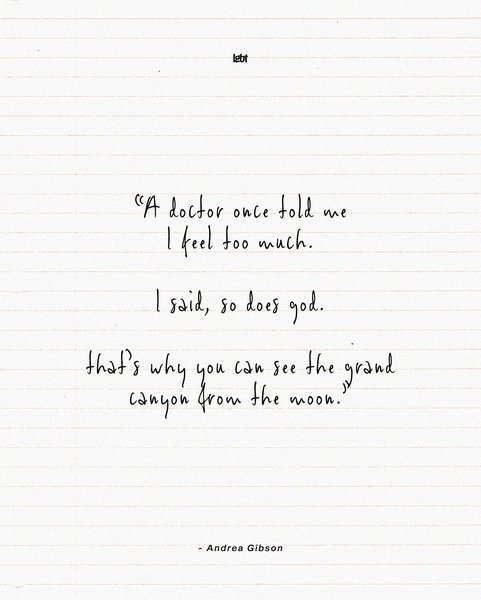 “A doctor once told me
I feel too much.
I said, so does god.
that's why you can see the grand
canyon from the moon.”
- Andrea Gibson